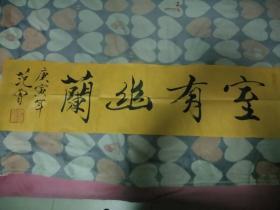 室有幽蘭
庚寅年